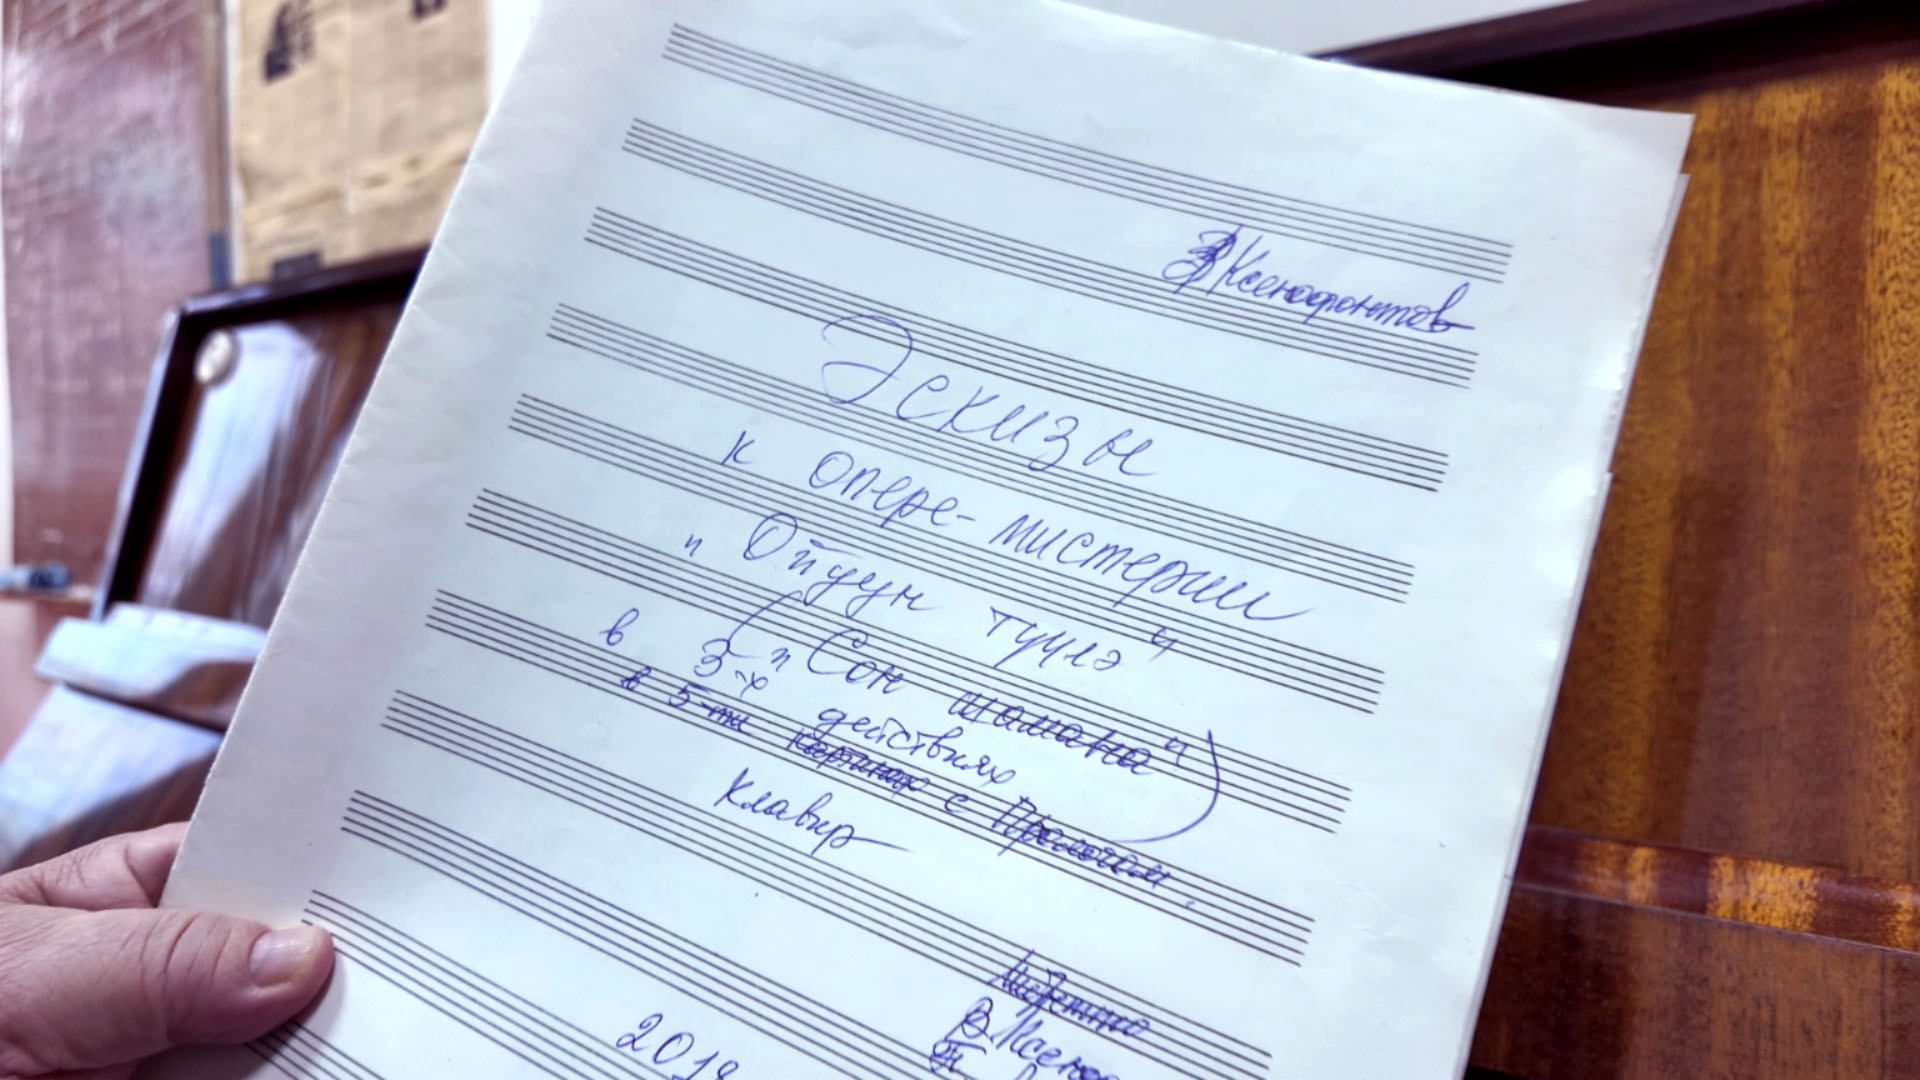 В Ксенофонтов
Эскизы
к опере-мистерии
"Ойуун түүлэ"
("Сон шамана")
в 3-х действиях
в 5-ти картинах с Прологом.
Клавир
2018
В. Ксено